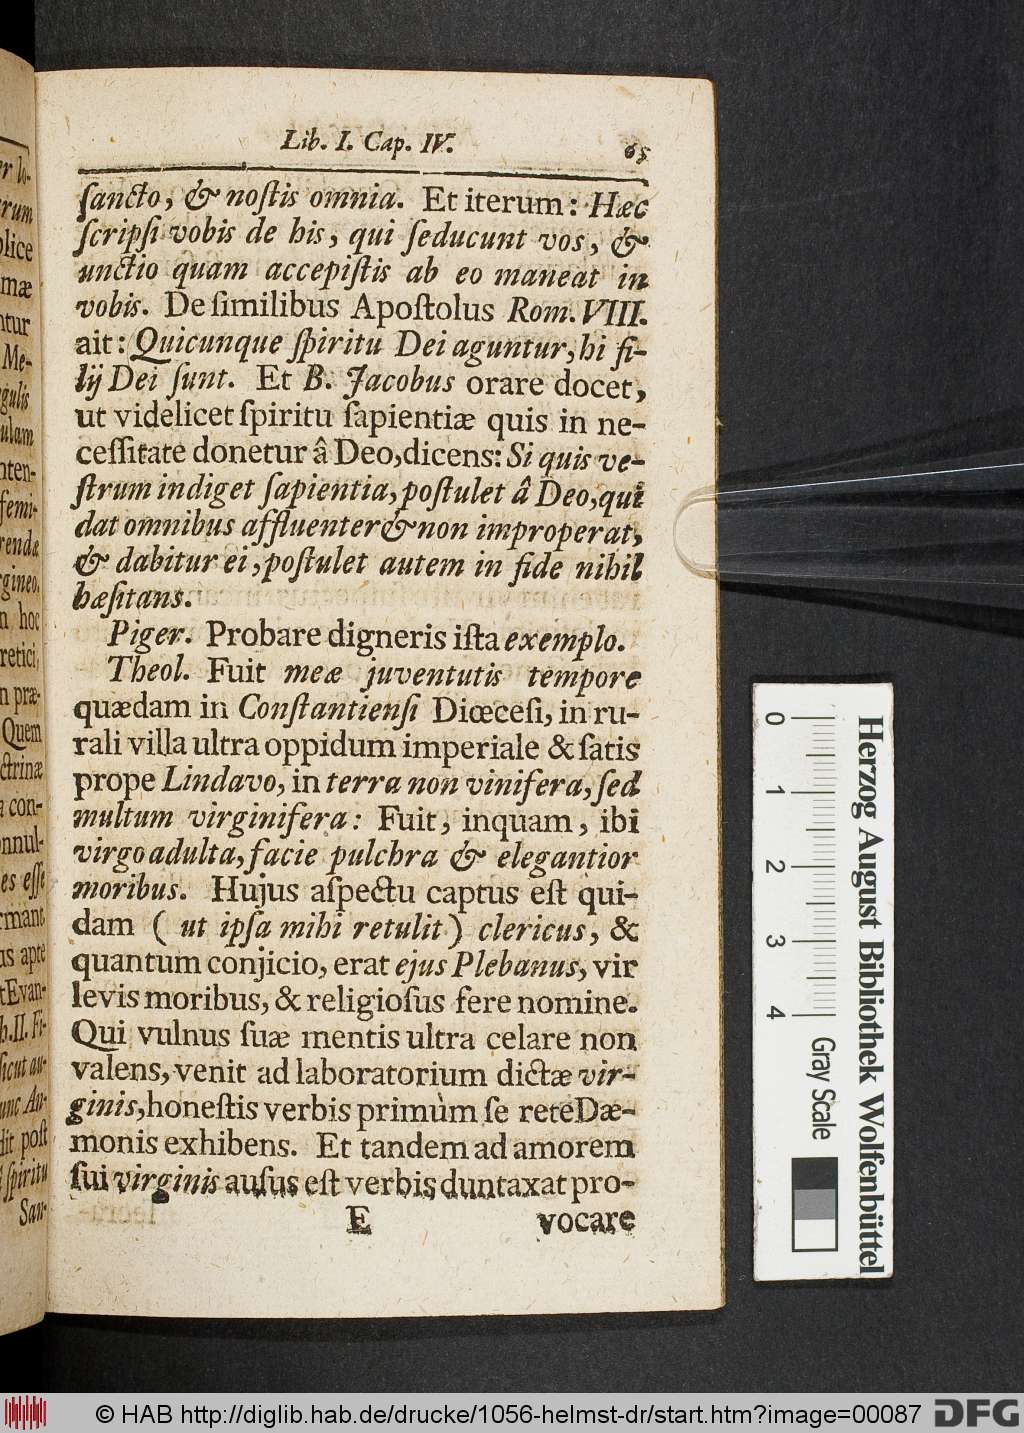 Lib. I. Cap. IV. 65
ſancto, & noſtis omnia. Et iterum: Hæc
ſcripſi vobis de his, qui ſeducunt vos, &
unctio quam accepiſtis ab eo maneat in
vobis. De ſimilibus Apoſtolus Rom. VIII.
ait: Quicunque ſpiritu Dei aguntur, hi fi-
lij Dei ſunt. Et B. Jacobus orare docet,
ut videlicet ſpiritu ſapientiæ quis in ne-
ceſſitate donetur â Deo, dicens: Si quis ve-
ſtrum indiget ſapientia, poſtulet â Deo, qui
dat omnibus affluenter & non improperat,
& dabitur ei, poſtulet autem in fide nihil
hæſitans.
Piger. Probare digneris iſta exemplo.
Theol. Fuit meæ juventutis tempore
quædam in Conſtantienſi Diœceſi, in ru-
rali villa ultra oppidum imperiale & ſatis
prope Lindavo, in terra non vinifera, ſed
multum virginifera: Fuit, inquam, ibi
virgo adulta, facie pulchra & elegantior
moribus. Hujus aſpectu captus eſt qui-
dam ( ut ipſa mihi retulit) clericus, &
quantum conjicio, erat ejus Plebanus, vir
levis moribus, & religioſus fere nomine.
Qui vulnus ſuæ mentis ultra celare non
valens, venit ad laboratorium dictæ vir-
ginis, honeſtis verbis primùm ſe rete Dæ-
monis exhibens. Et tandem ad amorem
ſui virginis auſus eſt verbis duntaxat pro-
E vocare
Herzog August Bibliothek Wolfenbüttel
0 1 2 3 4 Gray Scale
© HAB http://diglib.hab.de/drucke/1056-helmst-dr/start.htm?image=00087 DFG